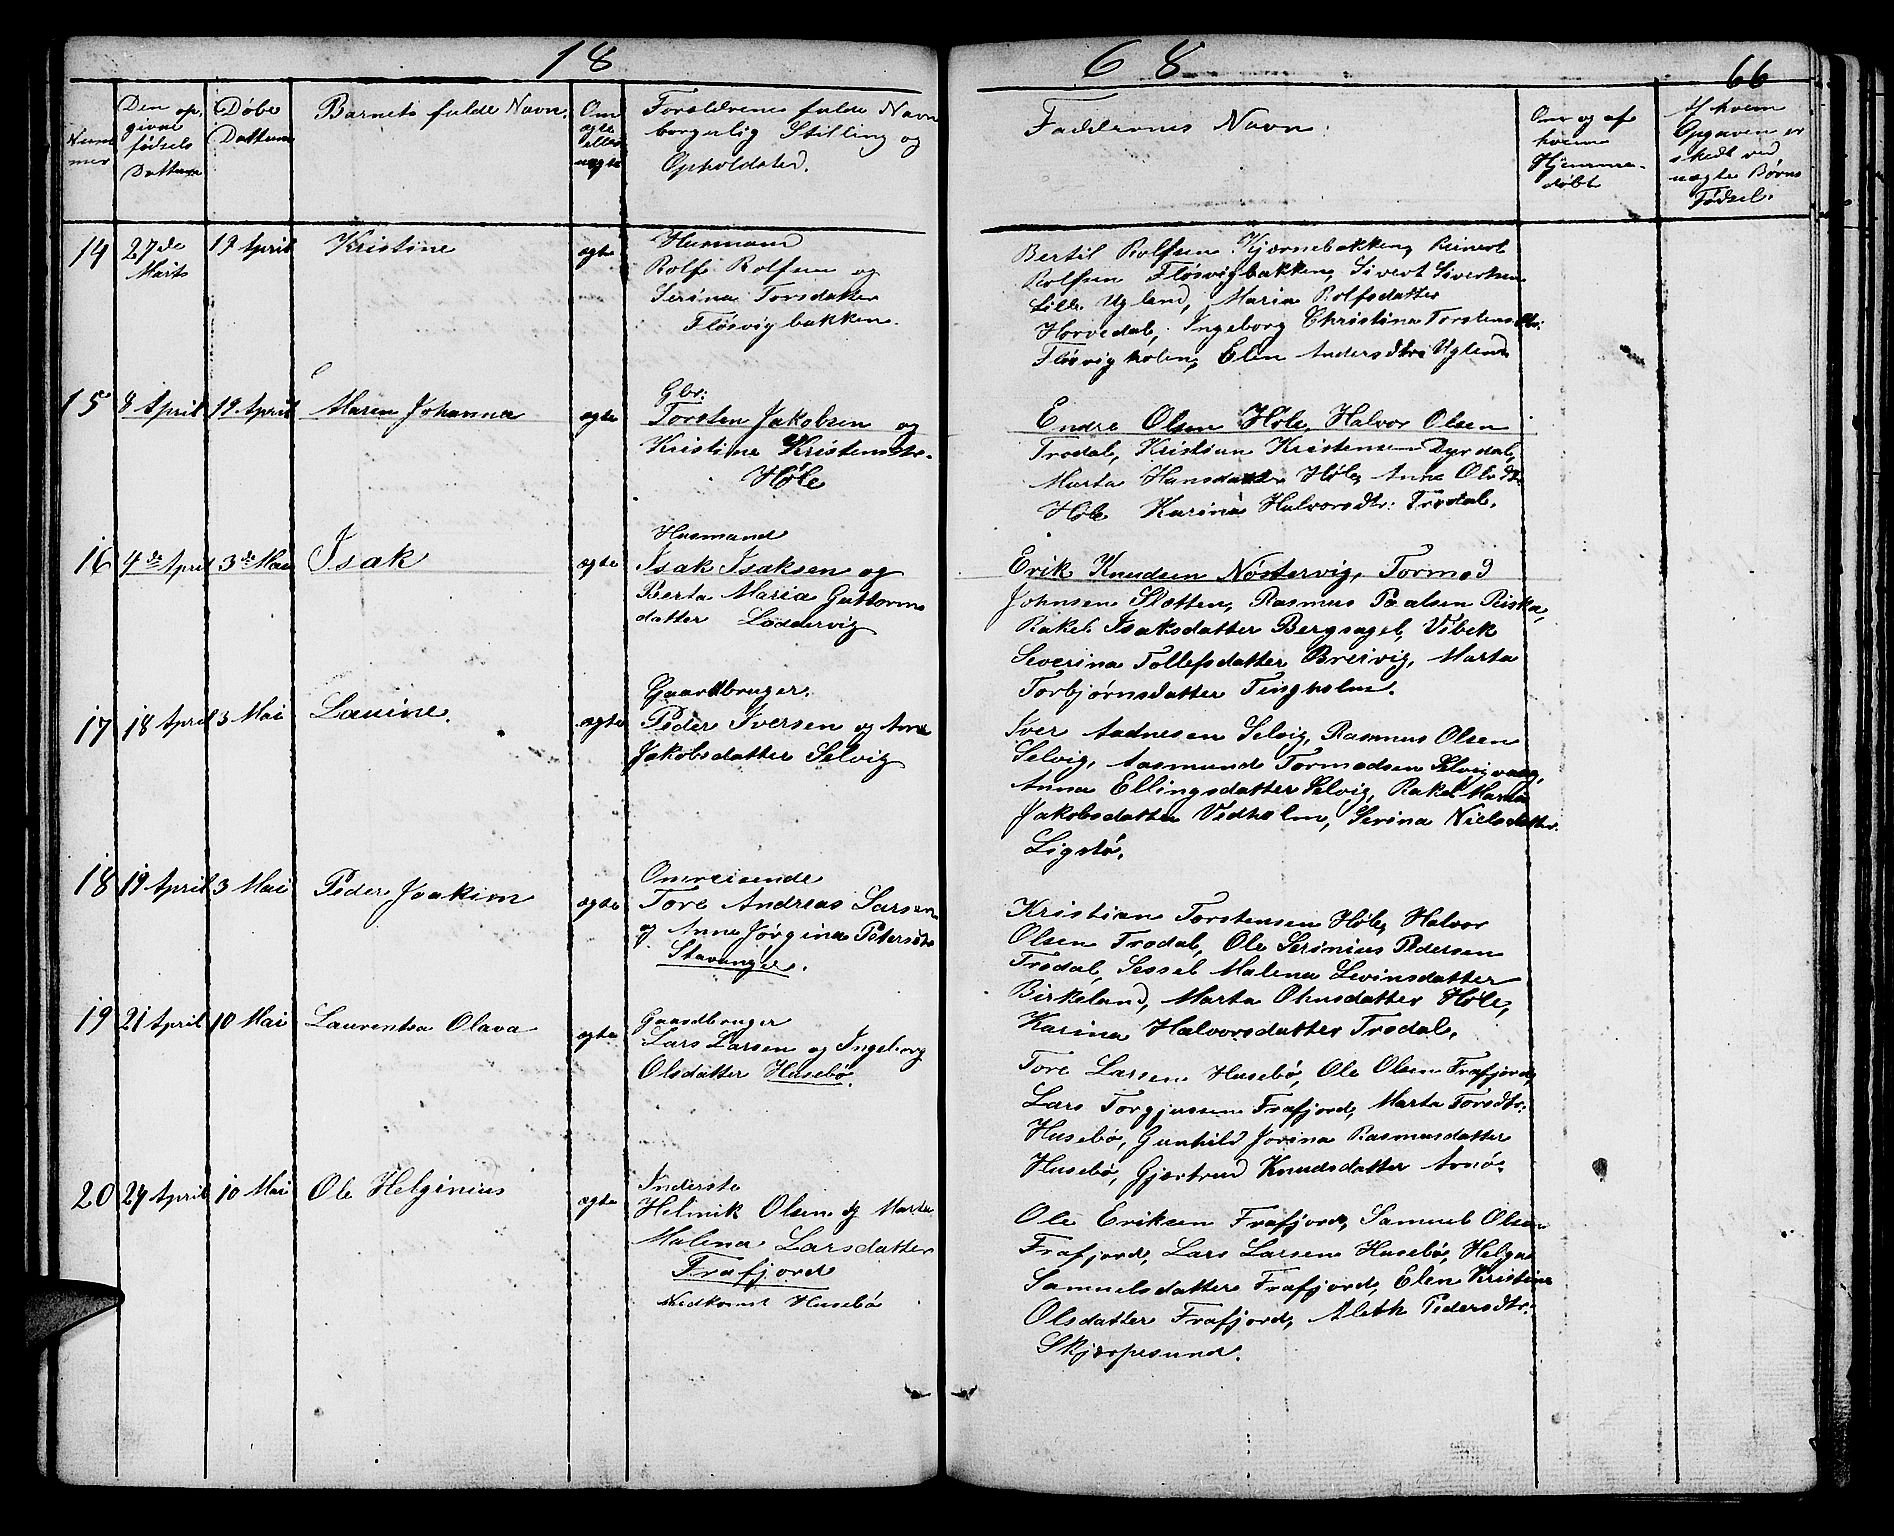 18 68
66
Nummer
Den op,
givne
fødsels
Dattum
Døbe
Dattum
Barnets fulde Navn.
Om
ægte
eller
uægte
Forældrenes fulde Navn
borgerlig Stilling og
Opholdsted.
Faddernes Navn.
Om og af
hvem
Hjemme-
døbt
Af hvem
Opgaven er
skedt ved
uægte Børns
Fødsel.
14 27de 19 April Kristine ægte Husmand
Marts
Rolf Rolfsen og
Serina Torsdatter
Fløsvigbakken.
Bertil Rolfsen Kjærnebakken, Reinert
Rolfsen Fløsvigbakken, Sivert Sivertsen
Lille Ugland, Maria Rolfsdatter
Horvedal, Ingeborg Christina Torstensdtr:
Fløsvigholen, Elen Andersdtr: Ugland
15 8 April 19 April Maren Johanna ægte Gbr:
Torsten Jakobsen og
Kristine Kristensdtr.
Høle
Endre Olsen Høle, Halvor Olsen
Trodal, Kristian Kristensen Dyrdal,
Marta Hansdatter Høle, Anna Olsdtr
Høle Karina Halvorsdtr: Trodal.
16 4de April 3de Mai Isak ægte Husmand
Isak Isaksen og
Berta Maria Guttorms
datter Loddervig
Erik Knudsen Nøstervig, Tormod
Johnsen Sletten, Rasmus Paalsen Riska,
Rakel Isaksdatter Bergsagel, Vibek
Severina Tollefsdatter Breivig, Marta
Torbjørnsdatter Tingholm.
17 18 April 3 Mai Lauine. ægte Gaardbruger.
Peder Iversen og Anna
Jakobsdatter Selvig
Iver Aadnesen Selvig, Rasmus Olsen
Selvig, Aasmund Tormodsen Selvigvaag,
Anna Ellingsdatter Selvig, Rakel Maria
Jakobsdatter Vidholm, Serina Nielsdatter
Ligstø.
18 19 April 3 Mai Peder Joakim ægte Omreisende
Tore Andreas Larsen
og Anne Jørgina Petersdtr
Stavanger.
Kristian Torstensen Høle, Halvor
Olsen Trodal, Ole Serinius Pedersen
Trodal, Sessel Malena Levinsdatter
Birkeland, Marta Ohnsdatter Høle,
Karina Halvorsdatter Trodal.
19 21 April 10 Mai Laurentsa Olava ægte Gaardbruger
Lars Larsen og Ingeborg
Olsdatter Husebø.
Tore Larsen Husebø, Ole Olsen Frafjord,
Lars Torgjussen Frafjord, Marta Torsdtr:
Husebø, Gunhild Jorina Rasmusdatter
Husebø, Gjertrud Knudsdatter Arnø.
20 24 April 10 Mai Ole Helginius ægte Inderste
Helmik Olsen og Marta
Malena Larsdatter
Frafjord
Nedkomst Husebø
Ole Eriksen Frafjord, Samuel Olsen
Frafjord, Lars Larsen Husebø, Helga
Samuelsdatter Frafjord, Elen Kristine
Olsdatter Frafjord, Aleth Pedersdtr:
Skjærpesund.